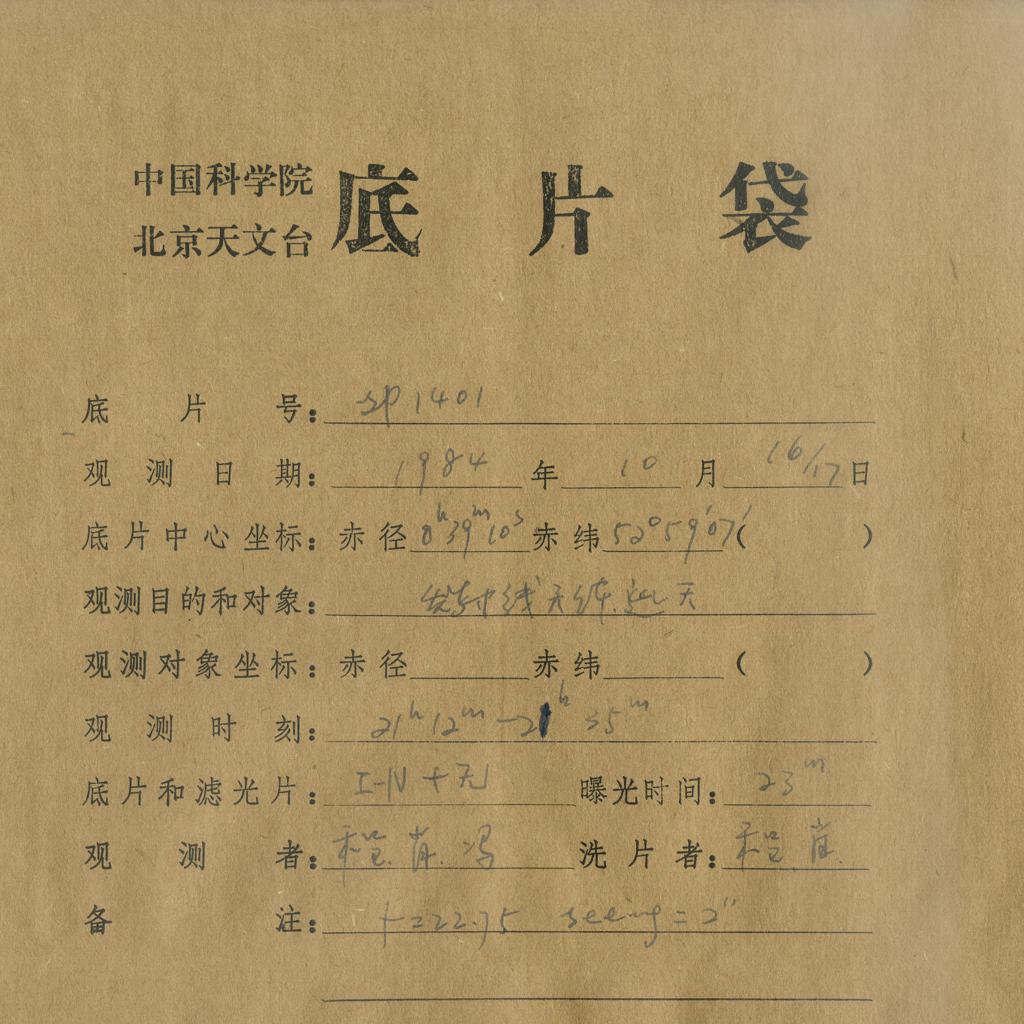 中国科学院 底片袋
北京天文台
底片号：SP1401
观测日期：1984年10月16/17日
底片中心坐标：赤径 0h39m10s 赤纬 52°59′07″( )
观测目的和对象：发射线天体巡天
观测对象坐标：赤径 赤纬 ( )
观测时刻：21h12m-21h35m
底片和滤光片：I-N+无 曝光时间：23m
观测者：程.肖.冯 洗片者：程肖.
备注：f=22.75 seeing=2″